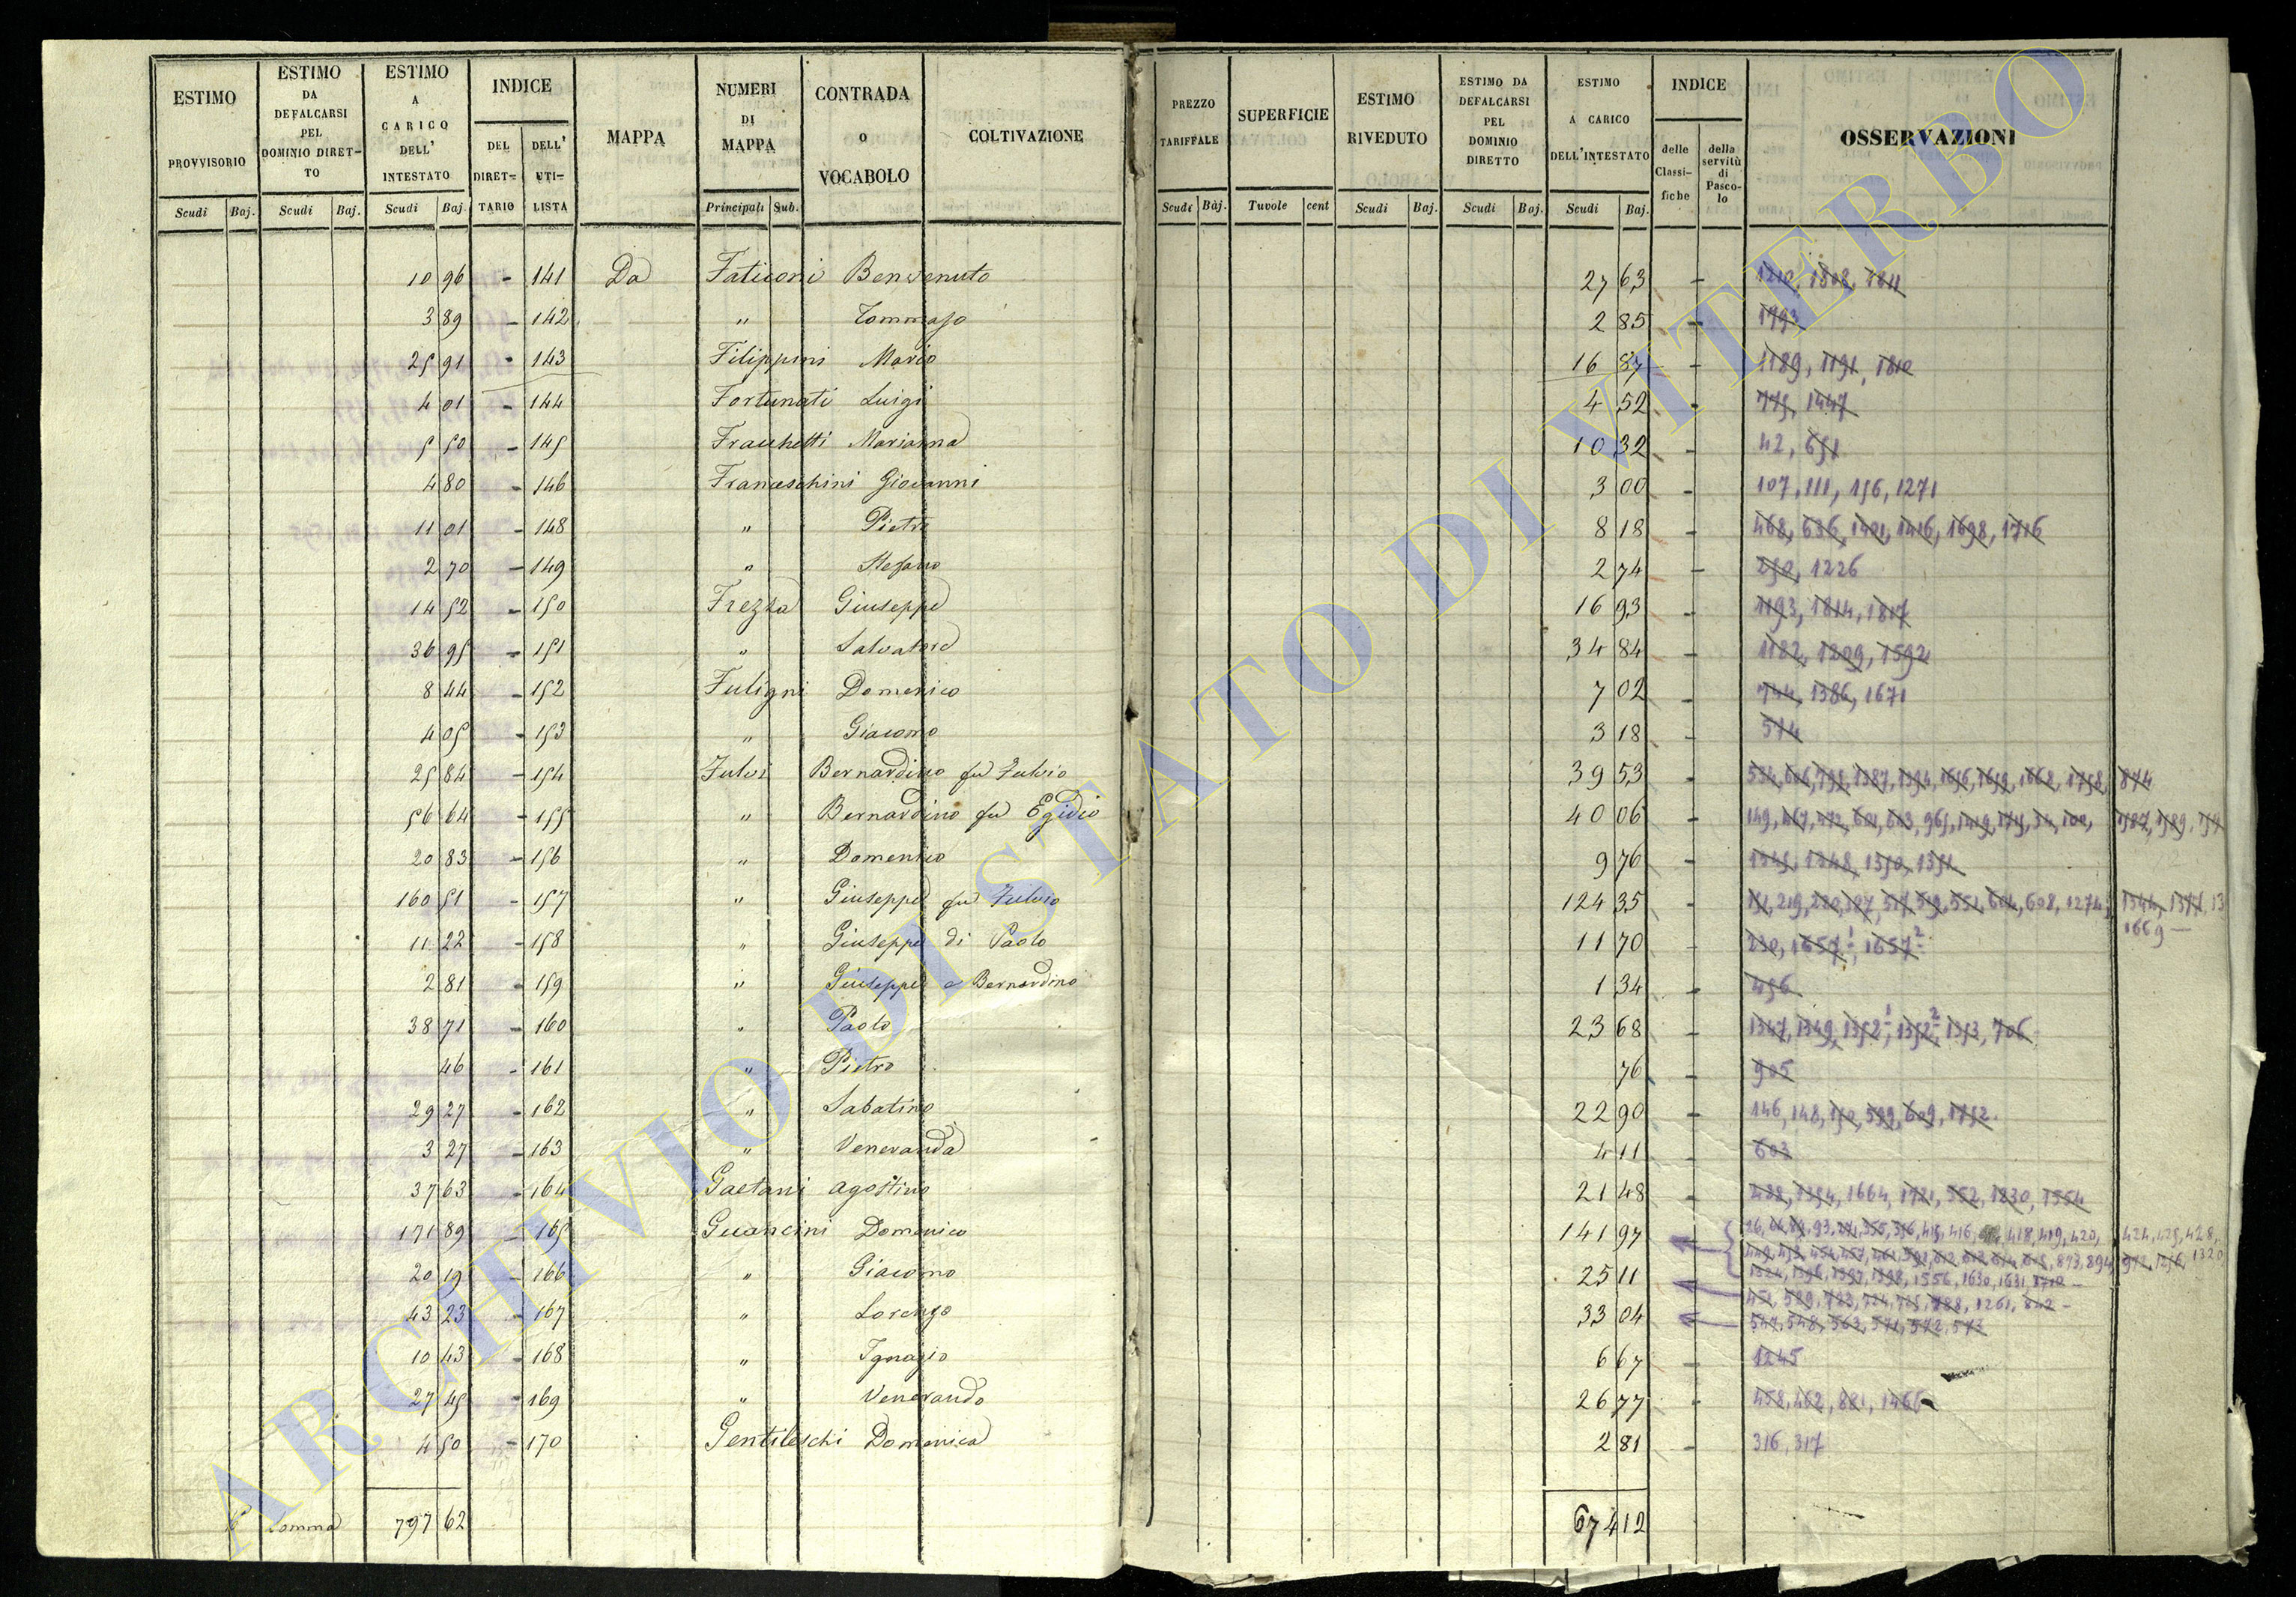 ESTIMO PROVVISORIO Scudi Baj.
ESTIMO DA DEFALCARSI PEL DOMINIO DIRET= TO Scudi Baj.
ESTIMO A CARICO DELL' INTESTATO Scudi Baj.
INDICE DEL DIRET= TARIO DELL' UTI= LISTA
MAPPA
NUMERI DI MAPPA Principali Sub.
CONTRADA o VOCABOLO
COLTIVAZIONE
PREZZO TARIFFALE Scudi Baj.
SUPERFICIE Tavole cent
ESTIMO RIVEDUTO Scudi Baj.
ESTIMO DA DEFALCARSI PEL DOMINIO DIRETTO Scudi Baj.
ESTIMO A CARICO DELL'INTESTATO Scudi Baj.
INDICE delle Classi- fiche della servitù di Pasco- lo
OSSERVAZIONI
10 96 - 141 Da Faticoni Benvenuto 27 63 - 1210, 1808, 1811
3 89 - 142 " Tommaso 2 85 - 1793
25 91 - 143 Filippini Mario 16 87 - 1189, 1191, 1810
4 01 - 144 Fortunati Luigi 4 52 - 775, 1447
5 50 - 145 Fracchetti Marianna 10 32 - 42, 651
4 80 - 146 Franceschini Giovanni 3 00 - 107, 111, 156, 1271
11 01 - 148 " Pietro 8 18 - 468, 636, 1401, 1416, 1698, 1716
2 70 - 149 " Stefano 2 74 - 250, 1226
14 52 - 150 Frezza Giuseppe 16 93 - 1193, 1814, 1817
36 95 - 151 " Salvatore 34 84 - 1182, 1209, 1592
8 44 - 152 Fuligni Domenico 7 02 - 744, 1386, 1671
4 05 - 153 " Giacomo 3 18 - 574
25 84 - 154 Fulvi Bernardino fu Fulvio 39 53 - 534, 606, 1387, 1394, 1656, 1659, 1668, 1758, 874
56 64 - 155 " Bernardino fu Egidio 40 06 - 149, 467, 472, 601, 613, 965, 1419, 34, 100,
20 83 - 156 " Domenico 9 76 - 1345, 1348, 1350, 1351
160 51 - 157 " Giuseppe fu Fulvio 124 35 - 219, 220, 517, 519, 551, 604, 608, 1274, 1344, 13
1669 -
11 22 - 158 " Giuseppe di Paolo 11 70 - 230, 1657 1, 1657 2
2 81 - 159 " Giuseppe e Bernardino 1 34 - 456
38 71 - 160 " Paolo 23 68 - 1347, 1349, 1352 1, 1352 2, 1353, 706
46 - 161 " Pietro 76 - 905
29 27 - 162 " Sabatino 22 90 - 146, 148, 150, 599, 609, 1752
3 27 - 163 " Veneranda 4 11 - 603
37 63 - 164 Gaetani Agostino 21 48 - 488, 1354, 1664, 1721, 552, 1830, 1554
171 89 - 165 Guancini Domenico 141 97 93, 415, 416, 418, 419, 420, 424, 425, 428,
893, 894, 1256, 1320
1324, 1396, 1397, 1398, 1556, 1630, 1631, 1710 -
20 19 - 166 " Giacomo 25 11 451, 589, 723, 724, 725, 788, 1261, 842 -
43 23 - 167 " Lorenzo 33 04 547, 548, 563, 571, 572, 573
10 43 - 168 " Ignazio 6 67 - 1245
27 45 - 169 " Venerando 26 77 - 458, 462, 881, 1466
4 50 - 170 Gentileschi Domenica 2 81 - 316, 317
Somma 797 62 674 12
ARCHIVIO DI STATO DI VITERBO